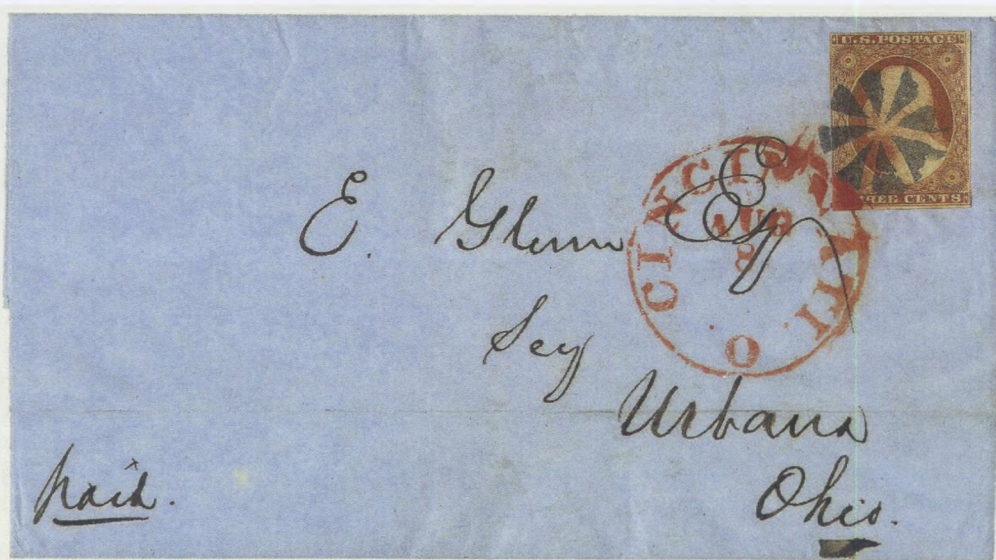 U.S. POSTAGE
THREE CENTS
CINCINNATI. O
AUG
8
E. Glenn Esq
Secy
Urbana
Ohio.
paid.